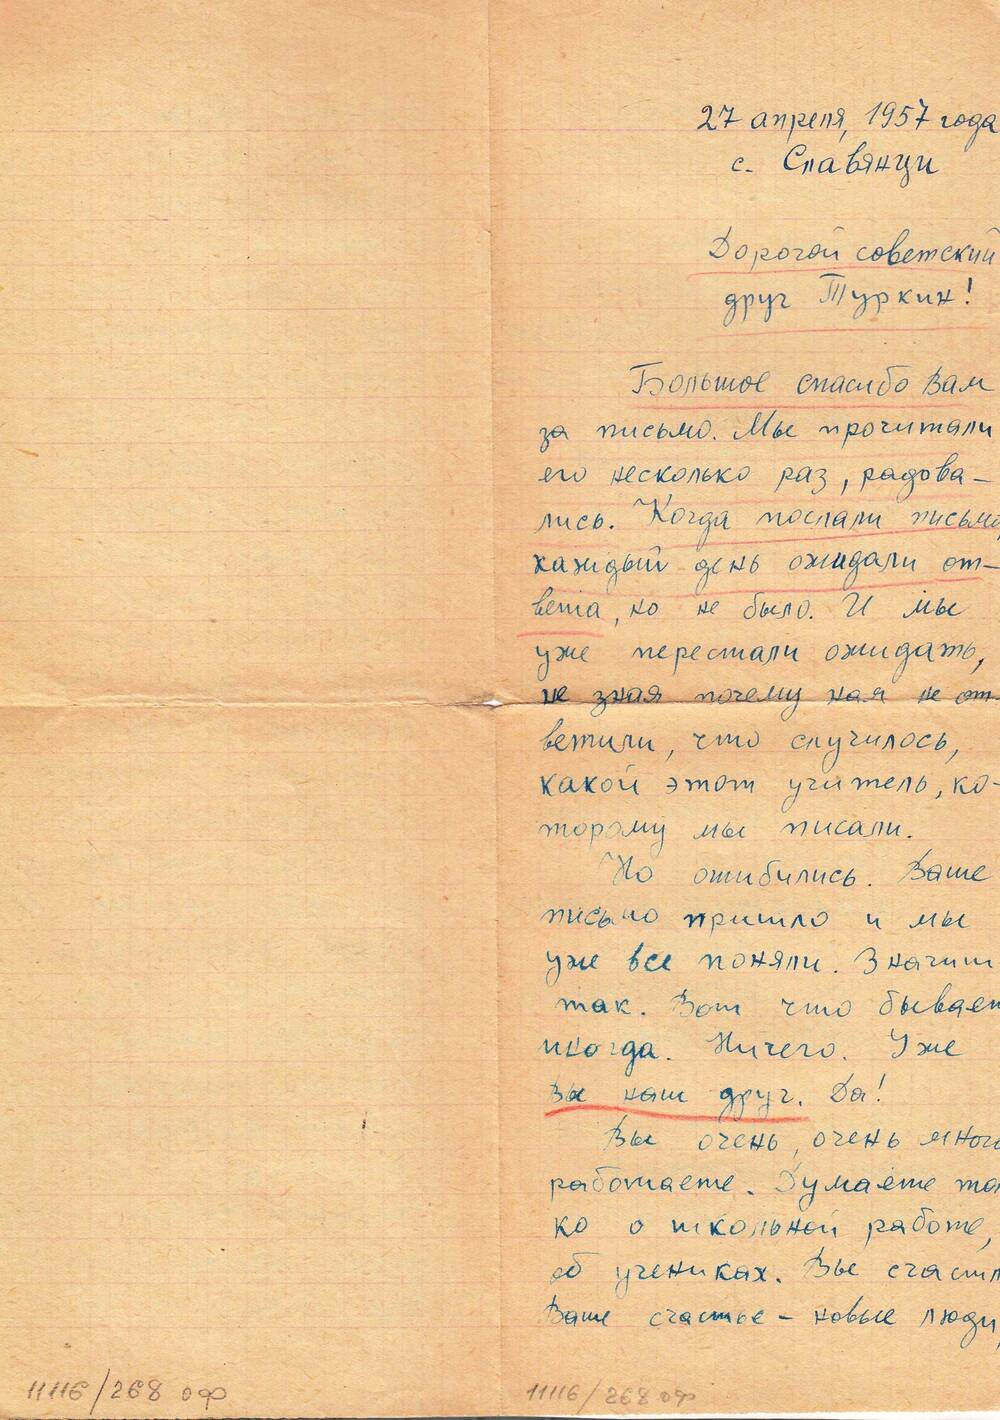 27 апреля, 1957 года
с. Славянци
Дорогой советский
друг Туркин!
Большое спасибо Вам
за письмо. Мы прочитали
его несколько раз, радова-
лись. Когда послали письмо,
каждый день ожидали от-
вета, но не было. И мы
уже перестали ожидать,
не зная почему ная не от-
ветили, что случилось,
какой этот учитель, ко-
торому мы писали.
Но ошибились. Ваше
письмо пришло и мы
уже все поняли. Значит
так. Вот что бывает
иногда. Ничего. Уже
Вы наш друг. Да!
Вы очень, очень много
работаете. Думаете то
ко о школьной работе,
об учениках. Вы счастл
Ваше счастье - новые люди,
11116/268 оф
11116/268 оф